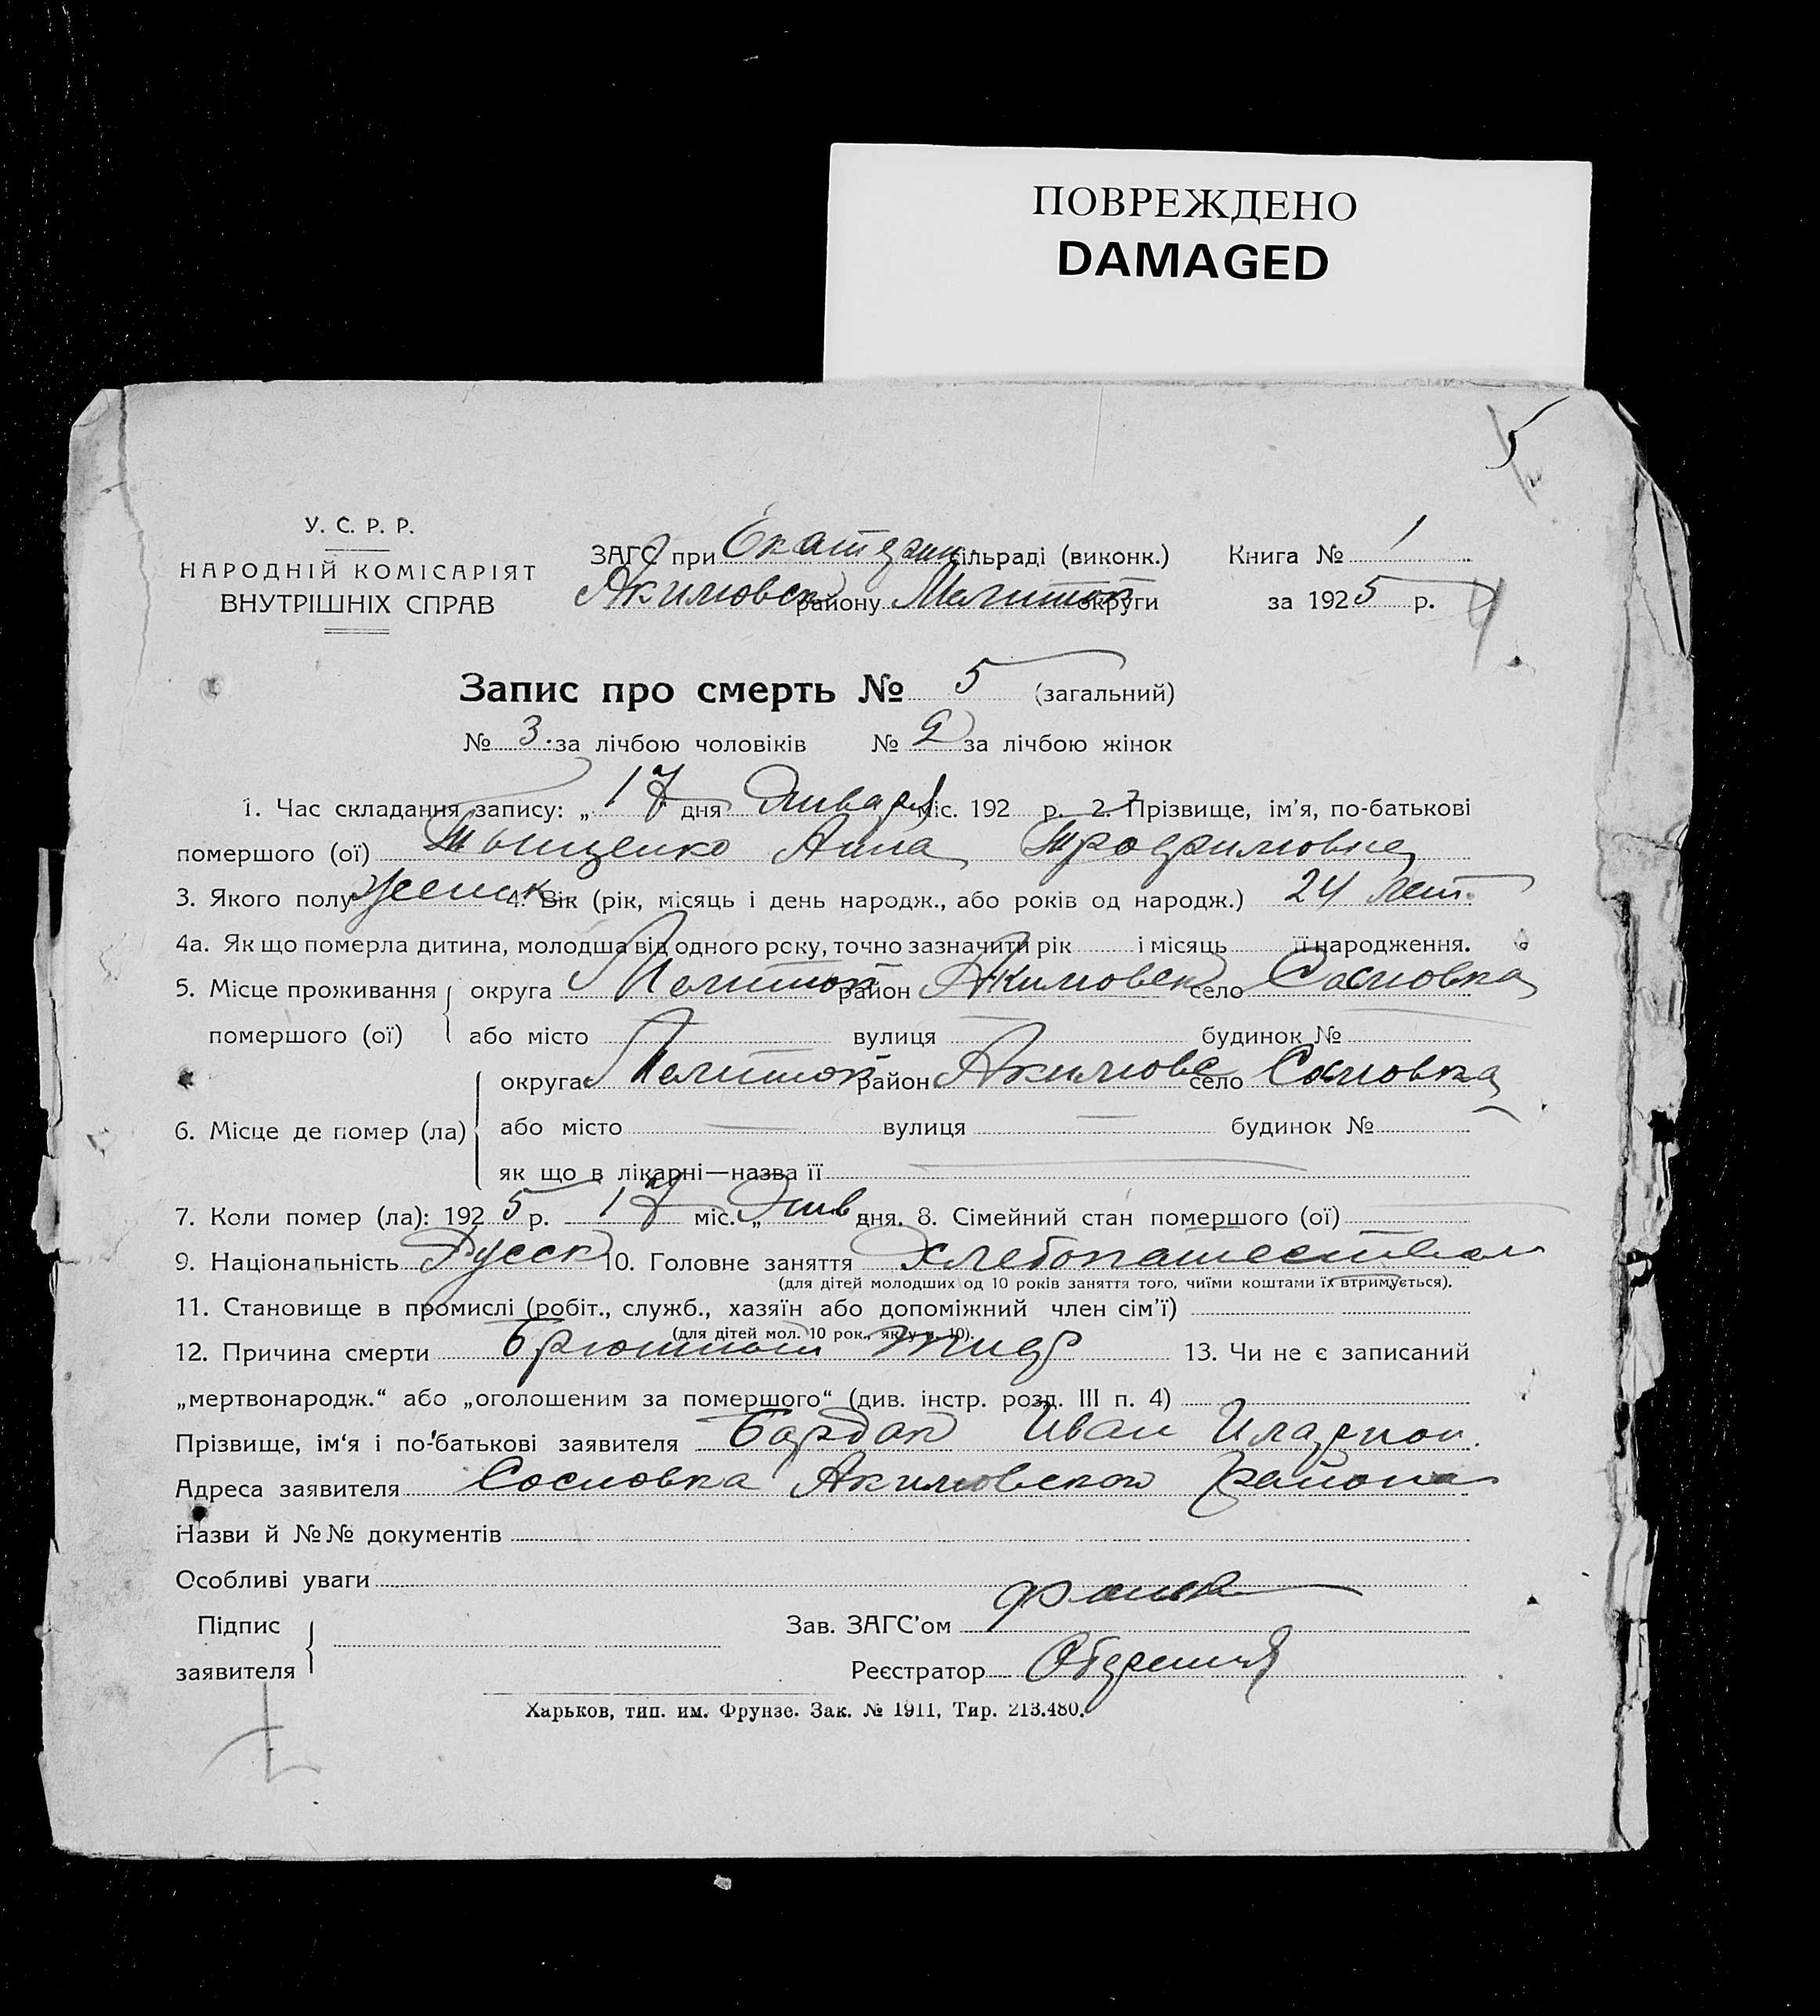 ПОВРЕЖДЕНО
DAMAGED
5
У. С. Р. Р.
НАРОДНІЙ КОМІСАРІЯТ
ВНУТРІШНІХ СПРАВ
ЗАГС при Екатерин сільраді (виконк.)
Акимовск району Мелитоп округи
Книга № 1
за 1925 р.
Запис про смерть № 5 (загальний)
№ 3. за лічбою чоловіків № 2 за лічбою жінок
1. Час складання запису: „ 17 дня Января міс. 192 р. 2. Прізвище, ім’я, по-батькові
помершого (ої) Тыщенко Анна Трофимовна
3. Якого полу женск 4. Вік (рік, місяць і день народж., або років од народж.) 24 лет.
4а. Як що померла дитина, молодша від одного року, точно зазначити рік і місяць її народження.
5. Місце проживання округа Мелитоп район Акимовск село Сосновка
помершого (ої) або місто вулиця будинок №
округа Мелитоп район Акимовс село Сосновка
6. Місце де помер (ла) або місто вулиця будинок №
як що в лікарні—назва її
7. Коли помер (ла): 1925 р. 17 міс. „ Янв дня. 8. Сімейний стан помершого (ої)
9. Національність Русск 10. Головне заняття Хлебопашеством
(для дітей молодших од 10 років заняття того, чиїми коштами їх втримується).
11. Становище в промислі (робіт., служб., хазяїн або допоміжний член сім’ї)
(для дітей мол. 10 рок., як у п. 10).
12. Причина смерти Брюшной тиф 13. Чи не є записаний
„мертвонародж.“ або „оголошеним за помершого“ (див. інстр. розд. III п. 4)
Прізвище, ім‘я і по-батькові заявителя Бардак Иван Иларион.
Адреса заявителя Сосновка Акимовского района
Назви й №№ документів
Особливі уваги
Підпис
заявителя
Зав. ЗАГС’ом
Реєстратор
Харьков, тип. им. Фрунзе. Зак. № 1911, Тир. 213.480.